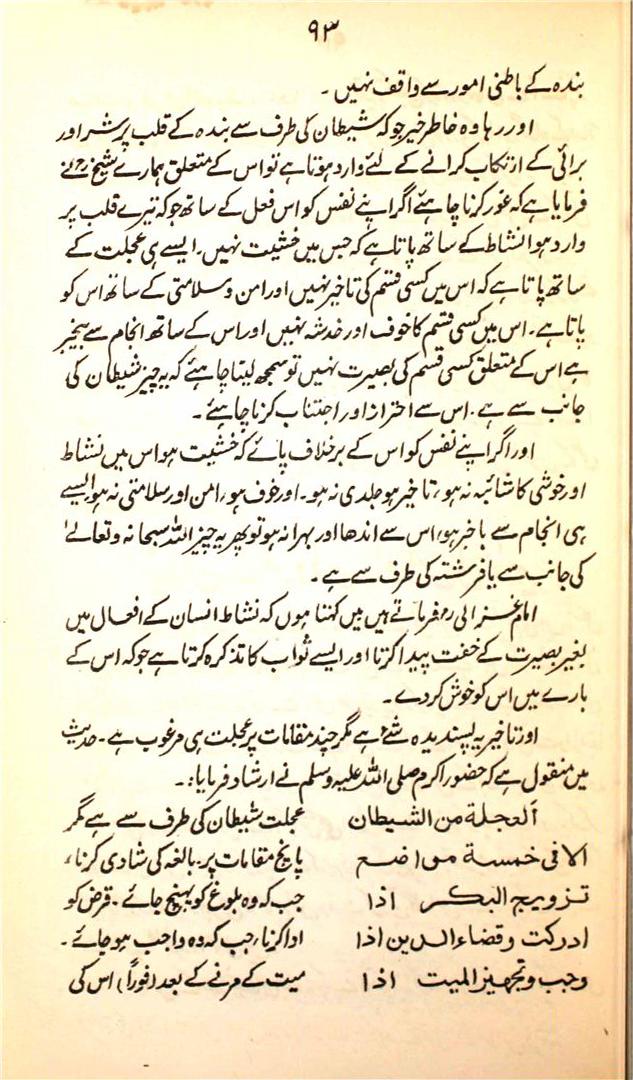 ۹۳
بندہ کے باطنی امور سے واقف نہیں۔
اور رہا وہ خاطر خیر جو کہ شیطان کی طرف سے بندہ کے قلب پر شر اور
برائی کے ارتکاب کرانے کے لئے وارد ہوتا ہے تو اس کے متعلق ہمارے شیخ رح نے
فرمایا ہے کہ غور کرنا چاہئے اگر اپنے نفس کو اس فعل کے ساتھ جو کہ تیرے قلب پر
وارد ہوا نشاط کے ساتھ پاتا ہے کہ جس میں خشیت نہیں۔ ایسے ہی عجلت کے
ساتھ پاتا ہے کہ اس میں کسی قسم کی تاخیر نہیں اور امن و سلامتی کے ساتھ اس کو
پاتا ہے۔ اس میں کسی قسم کا خوف اور خدشہ نہیں اور اس کے ساتھ انجام سے بیخبر
ہے اس کے متعلق کسی قسم کی بصیرت نہیں تو سمجھ لینا چاہئے کہ یہ چیز شیطان کی
جانب سے ہے۔ اس سے احتراز اور اجتناب کرنا چاہئے۔
اور اگر اپنے نفس کو اس کے برخلاف پائے کہ خشیت ہو اس میں نشاط
اور خوشی کا شائبہ نہ ہو، تاخیر ہو جلدی نہ ہو۔ اور خوف ہو، امن اور سلامتی نہ ہو، ایسے
ہی انجام سے باخبر ہو، اس سے اندھا اور بہرا نہ ہو تو پھر یہ چیز اللہ سبحانہ وتعالےٰ
کی جانب سے یا فرشتہ کی طرف سے ہے۔
امام غزالی رح فرماتے ہیں میں کہتا ہوں کہ نشاط انسان کے افعال میں
بغیر بصیرت کے خفت پیدا کرتا اور ایسے ثواب کا تذکرہ کرتا ہے جو کہ اس کے
بارے میں اس کو خوش کر دے۔
اور تاخیر یہ پسندیدہ شئے ہے مگر چند مقامات پر عجلت ہی مرغوب ہے۔ حدیث
میں منقول ہے کہ حضور اکرم صلی اللہ علیہ وسلم نے ارشاد فرمایا:۔
ألعجلة من الشيطان عجلت شیطان کی طرف سے ہے مگر
الا فی خمسة مواضع پانچ مقامات پر۔ بالغہ کی شادی کرنا،
تزويج البكر اذا جب کہ وہ بلوغ کو پہنچ جائے۔ قرض کو
ادركت وقضاء الدين اذا ادا کرنا، جب کہ وہ واجب ہو جائے۔
وجب وتجهيز الميت اذا میت کے مرنے کے بعد (فوراً) اس کی